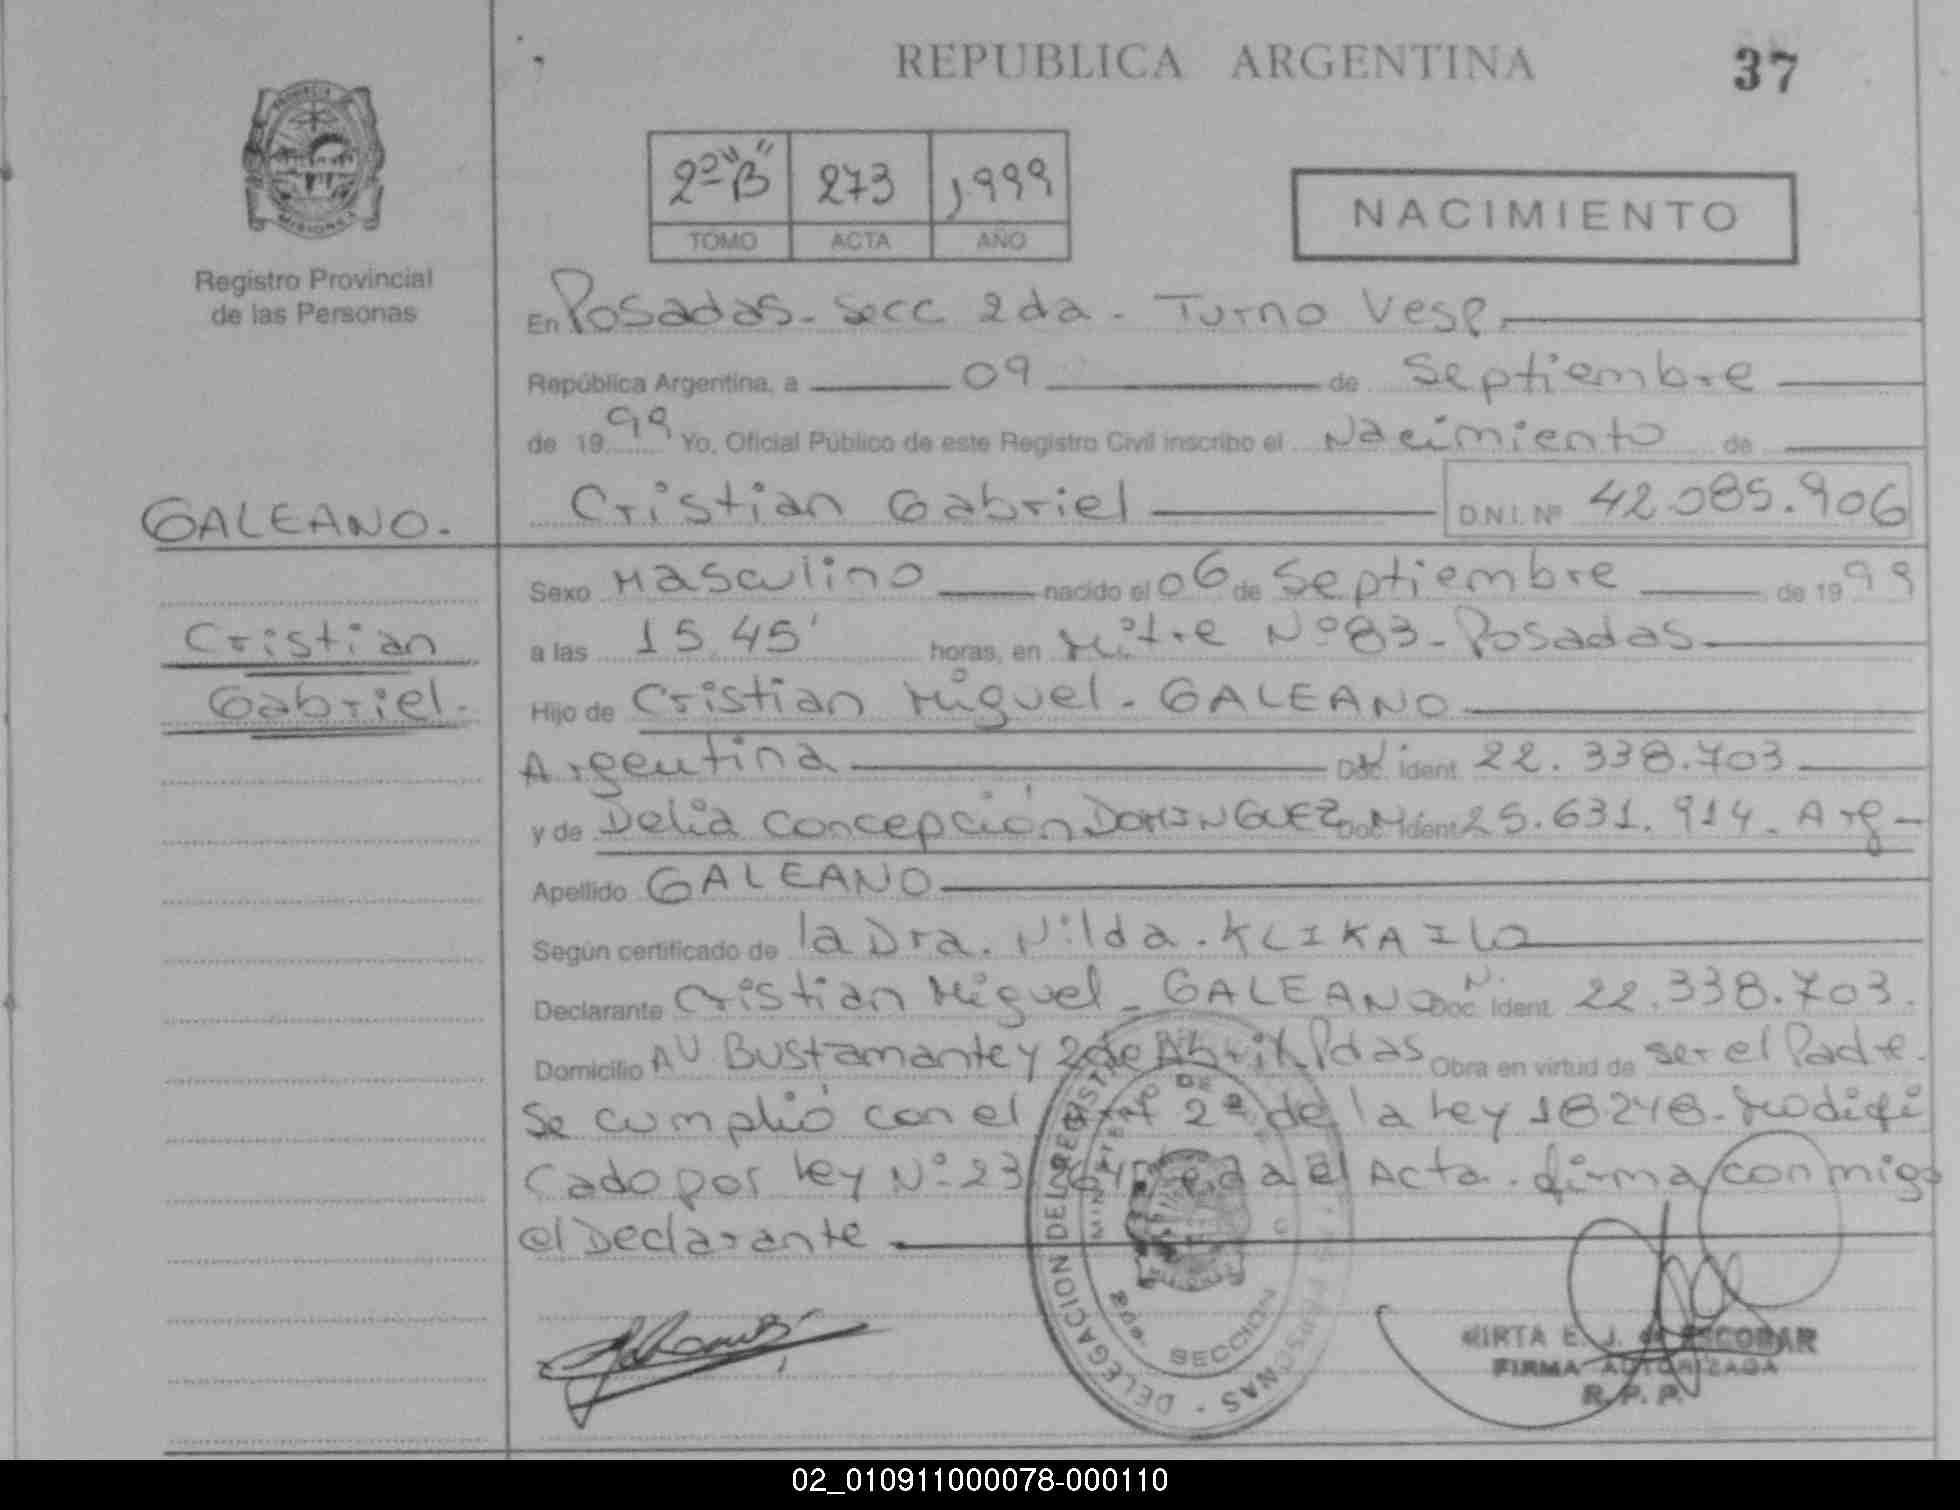 REPUBLICA ARGENTINA
37
PROVINCIA
MISIONES
Registro Provincial
de las Personas
2º "B" 273 1,999
TOMO ACTA AÑO
NACIMIENTO
En Posadas - Secc 2da - Turno Vesp.
República Argentina, a 09 de Septiembre
de 1999 Yo, Oficial Público de este Registro Civil inscribo el Nacimiento de
GALEANO.
Cristian Gabriel D.N.I. Nº 42.085.906
Cristian
Gabriel.
Sexo Masculino nacido el 06 de Septiembre de 1999
a las 15.45' horas, en Mitre Nº 83 - Posadas
Hijo de Cristian Miguel - GALEANO
Argentina Doc. Ident. 22.338.703
y de Delia Concepción DOMINGUEZ Doc. Ident. 25.631.914. Arg -
Apellido GALEANO
Según certificado de la Dra. Nilda.
Declarante Cristian Miguel - GALEANO Doc. Ident. 22.338.703.
Domicilio AV Bustamante y 2 de Abril Pdas Obra en virtud de ser el Padre.
Se cumplió con el Art 2º de la Ley 18248 - Modifi
cado por Ley Nº 23 el Acta. firma conmigo
el Declarante
DELEGACION DEL REGISTRO PERSONAS
MINISTERIO DE
2da. SECCION
MIRTA E. J. de ESCOBAR
FIRMA AUTORIZADA
R. P. P.
02_010911000078-000110